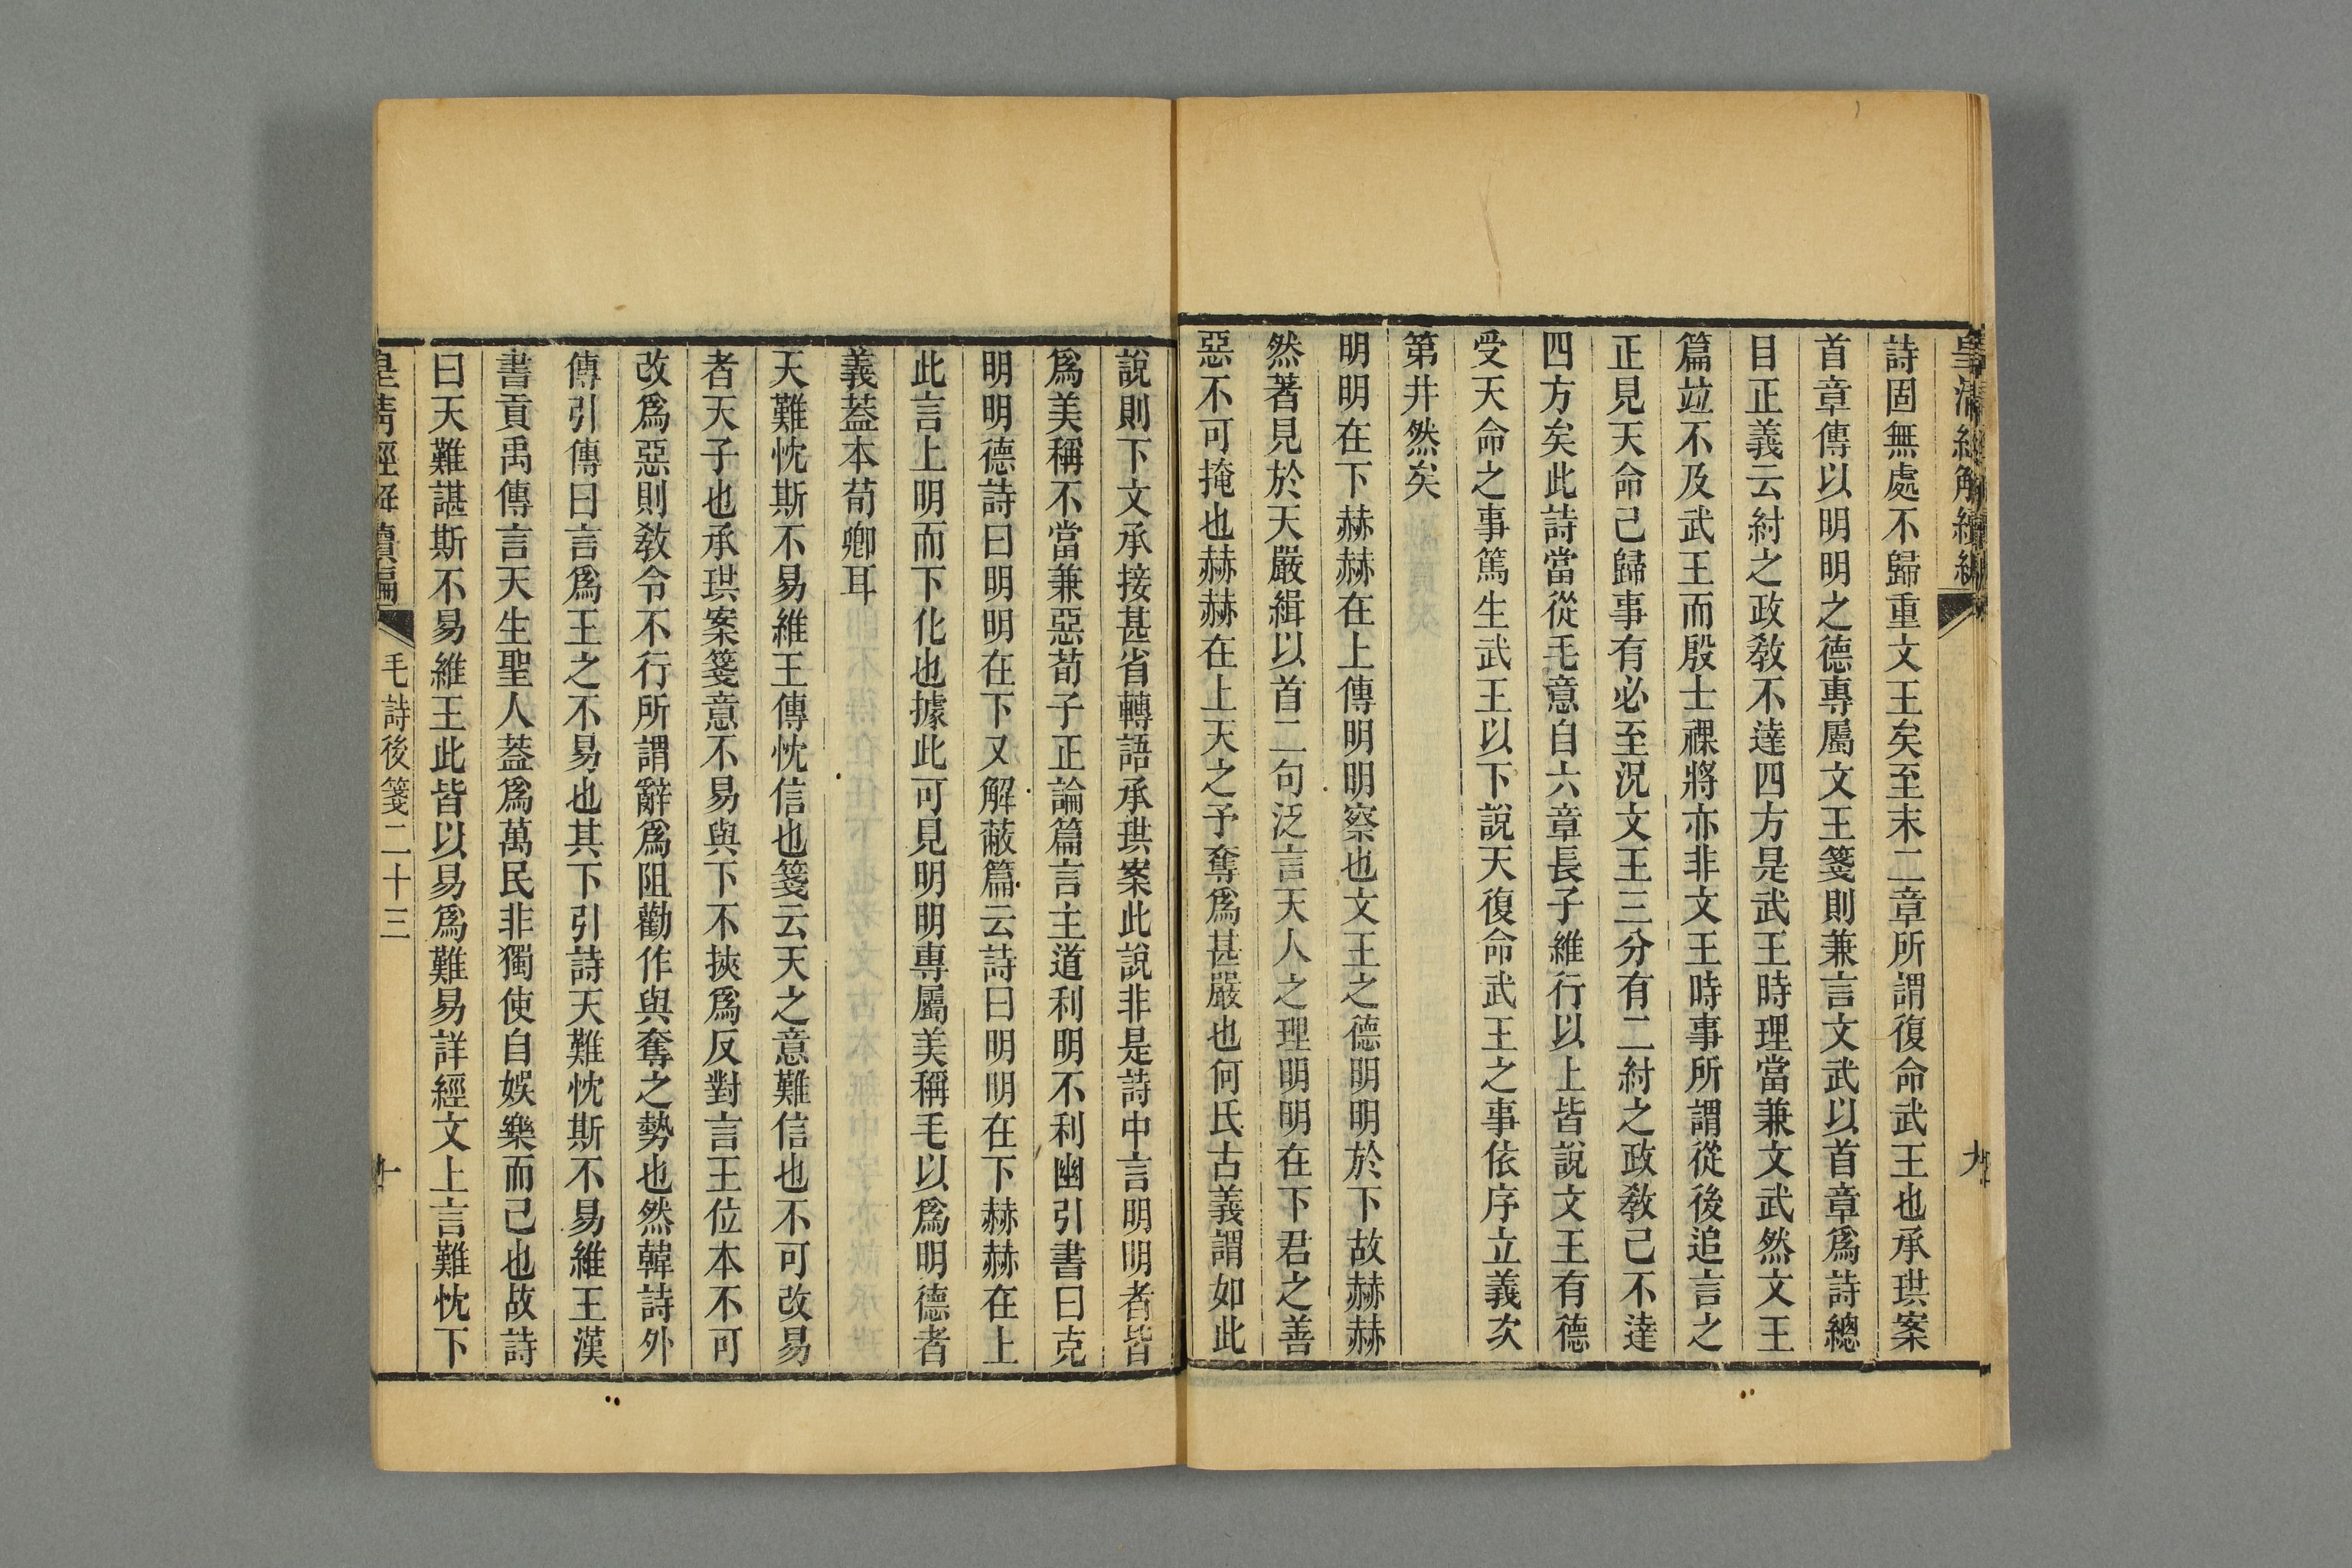 皇清經解續編
九
詩固無處不歸重文王矣至末二章所謂復命武王也承珙案
首章傳以明明之德專屬文王箋則兼言文武以首章爲詩總
目正義云紂之政敎不達四方是武王時理當兼文武然文王
篇竝不及武王而殷士祼將亦非文王時事所謂從後追言之
正見天命已歸事有必至況文王三分有二紂之政敎已不達
四方矣此詩當從毛意自六章長子維行以上皆說文王有德
受天命之事篤生武王以下說天復命武王之事依序立義次
第井然矣
明明在下赫赫在上傳明明察也文王之德明明於下故赫赫
然著見於天嚴緝以首二句泛言天人之理明明在下君之善
惡不可掩也赫赫在上天之予奪爲甚嚴也何氏古義謂如此
說則下文承接甚省轉語承珙案此說非是詩中言明明者皆
爲美稱不當兼惡荀子正論篇言主道利明不利幽引書曰克
明明德詩曰明明在下又解蔽篇云詩曰明明在下赫赫在上
此言上明而下化也據此可見明明專屬美稱毛以爲明德者
義葢本荀卿耳
天難忱斯不易維王傳忱信也箋云天之意難信也不可改易
者天子也承珙案箋意不易與下不挾爲反對言王位本不可
改爲惡則敎令不行所謂辭爲阻勸作與奪之勢也然韓詩外
傳引傳曰言爲王之不易也其下引詩天難忱斯不易維王漢
書貢禹傳言天生聖人葢爲萬民非獨使自娛樂而已也故詩
曰天難諶斯不易維王此皆以易爲難易詳經文上言難忱下
皇清經解續編
毛詩後箋二十三
十